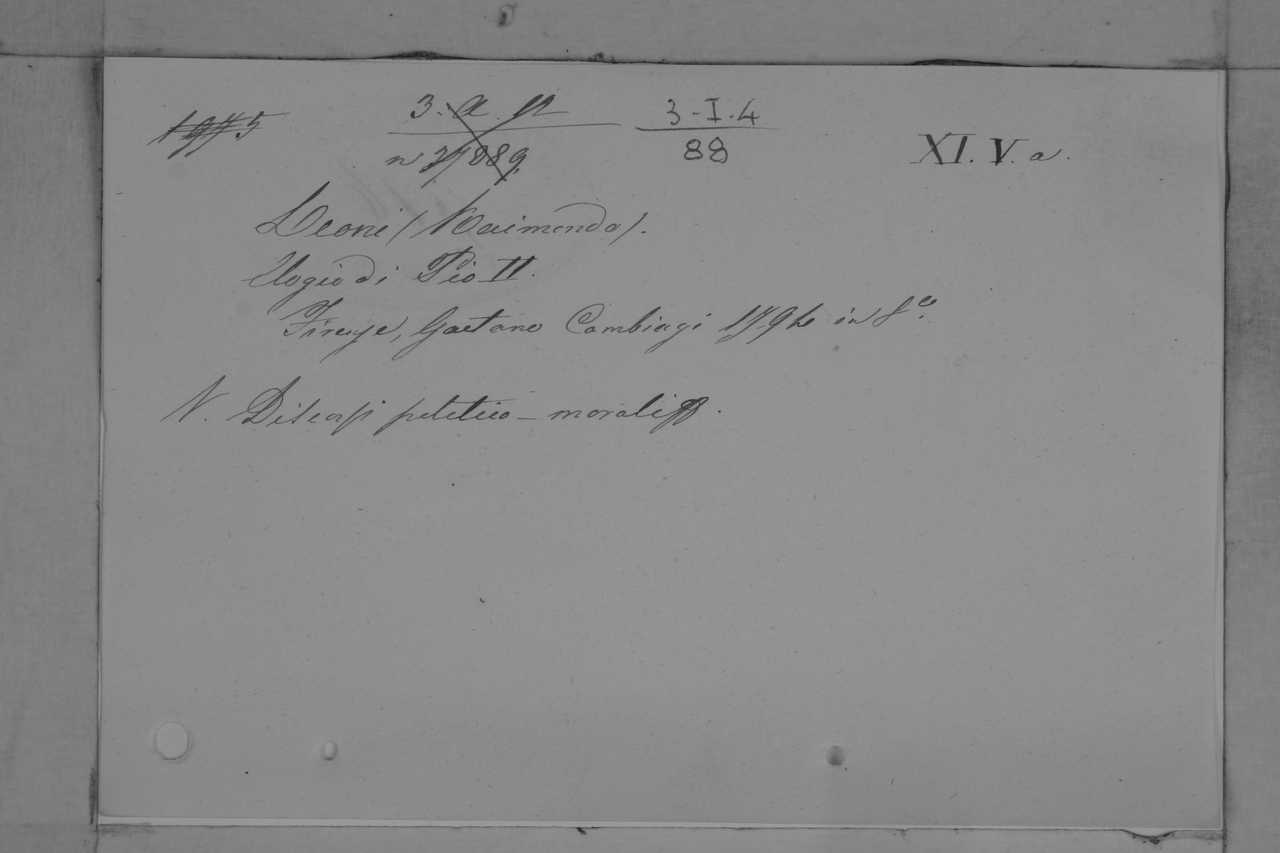 3-I-4
88
XI. V. a.
Leoni (Raimondo).
Elogio di Pio II.
Firenze, Gaetano Cambiagi 179 in 8º.
V. Discorsi politico-morali